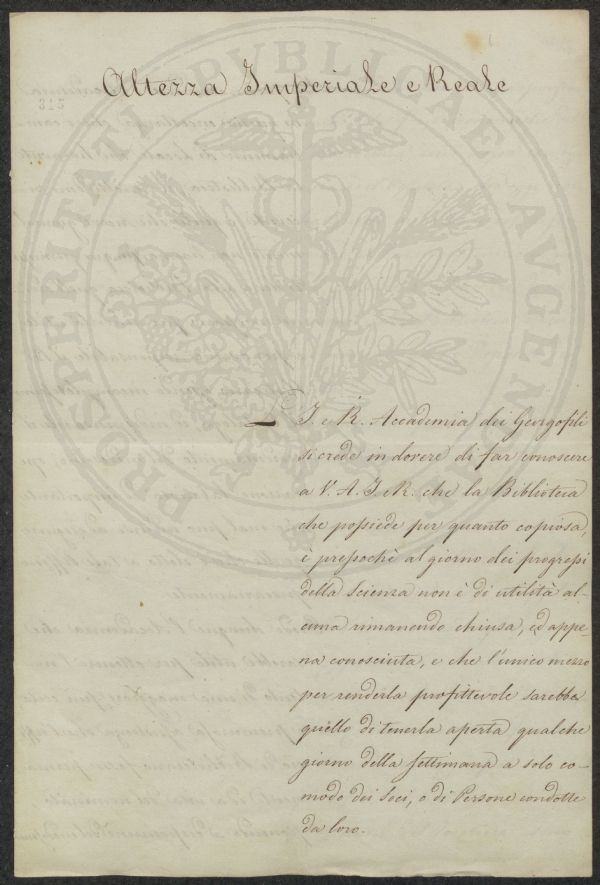 Altezza Imperiale e Reale
315
PROSPERITATI PUBLICAE AUGENDAE
L' I. e R. Accademia dei Georgofili
si crede in dovere di far conoscere
a V. A. I. e R. che la Biblioteca
che possiede per quanto copiosa,
è pressochè al giorno dei progressi
della Scienza non è di utilità al-
cuna rimanendo chiusa, ed appe-
na conosciuta, e che l'unico mezzo
per renderla profittevole sarebbe
quello di tenerla aperta qualche
giorno della settimana a solo co-
modo dei Soci, o di Persone condotte
da loro.